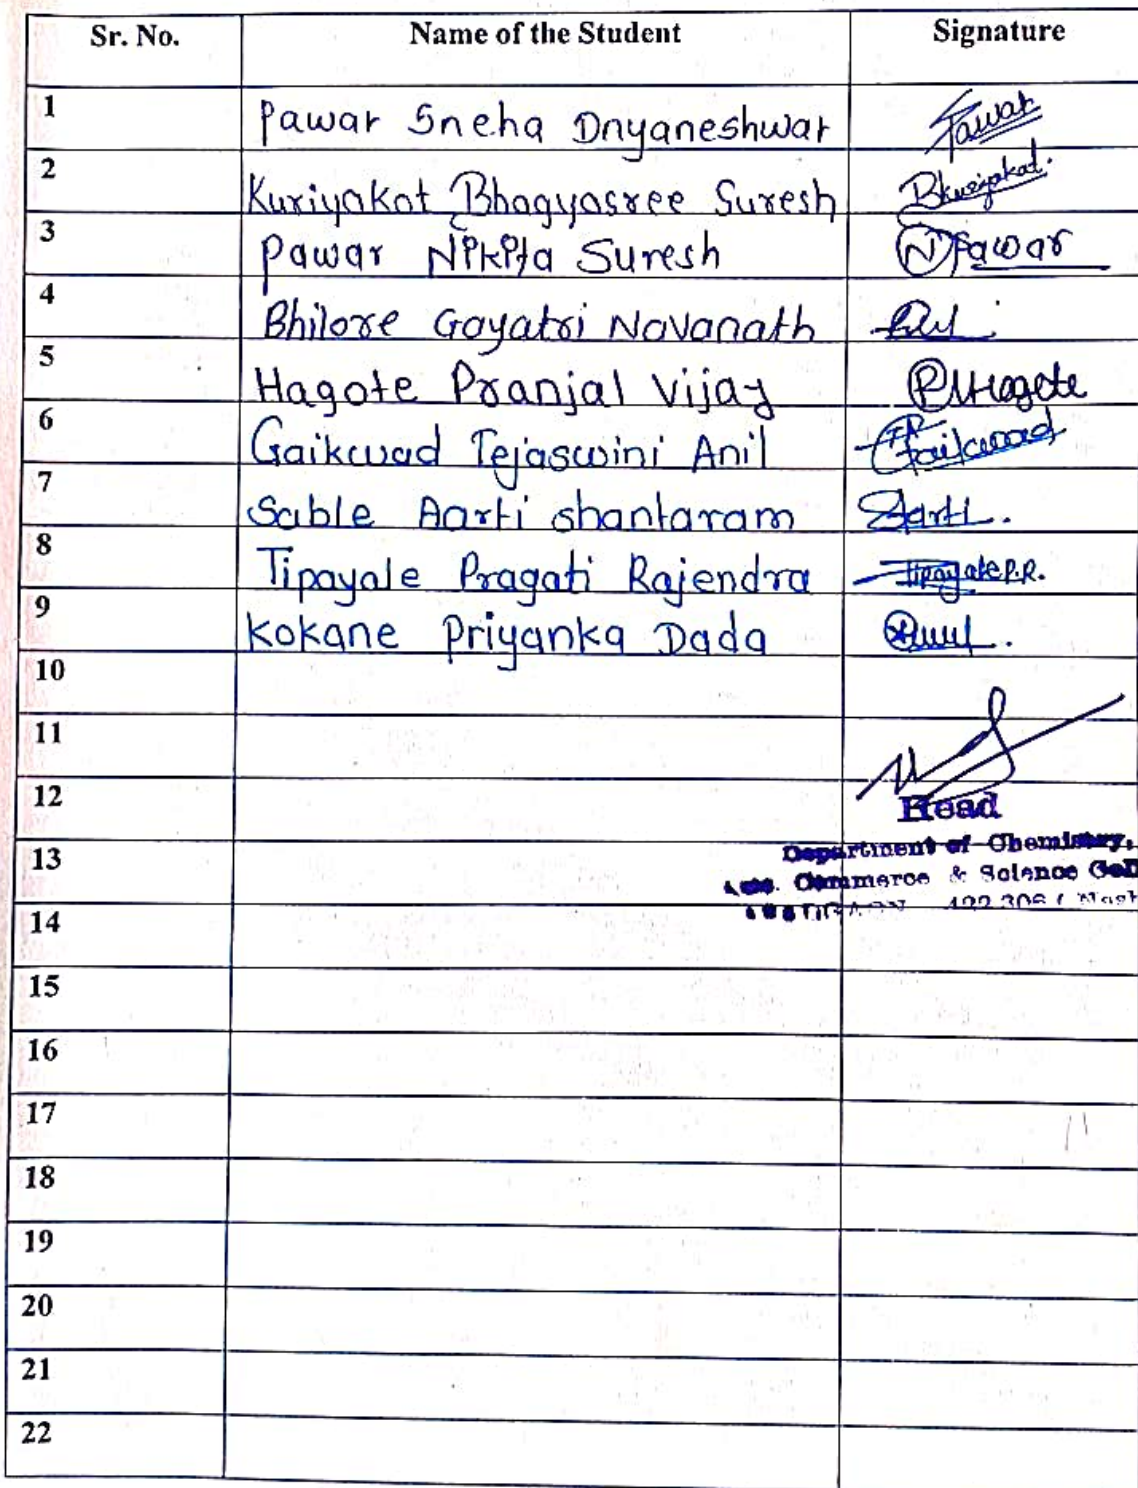 Sr. No. Name of the Student Signature
1 Pawar Sneha Dnyaneshwar Pawar
2 Kuriyakot Bhagyasree Suresh Bkuriyakot.
3 Pawar Nikita Suresh N Pawar
4 Bhilore Gayatri Navanath
5 Hagote Pranjal Vijay P.V.Hagote
6 Gaikwad Tejaswini Anil Gaikwad
7 Sable Aarti shantaram Aarti.
8 Tipayale Pragati Rajendra Tipayale P.R.
9 Kokane Priyanka Dada
10
11
12 Head
Department of Chemistry,
13 Commerce & Science
14 422 306 ( Nash
15
16
17
18
19
20
21
22